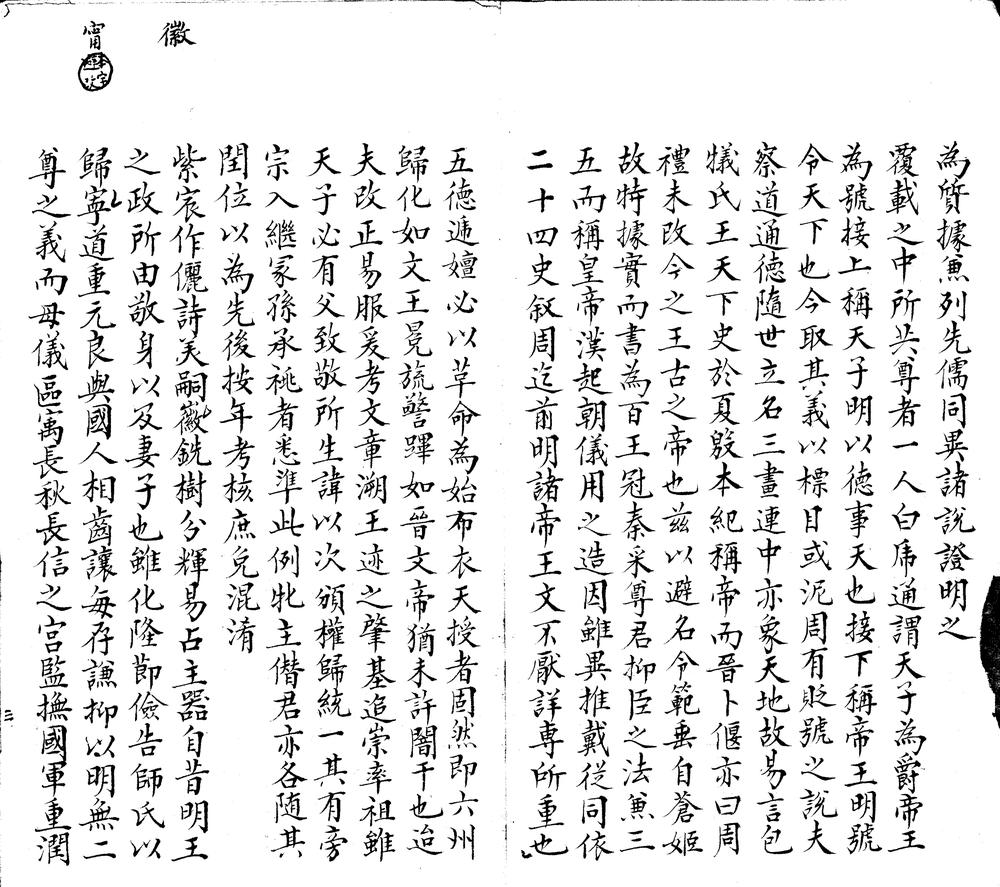 為質據兼列先儒同異諸說證明之
覆載之中所共尊者一人白虎通謂天子為爵帝王
為號接上稱天子明以德事天也接下稱帝王明號
令天下也今取其義以標目或泥周有貶號之說夫
察道通德隨世立名三畫連中亦象天地故易言包
犧氏王天下史於夏殷本紀稱帝而晉卜偃亦曰周
禮未改今之王古之帝也茲以避名令範垂自蒼姬
故特據實而書為百王冠秦采尊君抑臣之法兼三
五而稱皇帝漢起朝儀用之造因雖異推戴從同依
二十四史敘周迄前明諸帝王文不厭詳專所重也
五德遞嬗必以革命為始布衣天授者固然即六州
歸化如文王冕旒警蹕如晉文帝猶未許闇干也迨
夫改正易服爰考文章溯王迹之肇基追崇率祖雖
天子必有父致敬所生諱以次頒權歸統一其有旁
宗入繼冢孫承祧者悉準此例牝主僭君亦各隨其
閏位以為先後按年考核庶免混淆
紫宸作儷詩美嗣徽銑樹分輝易占主器自昔明王
之政所由敬身以及妻子也雖化隆節儉告師氏以
歸寧道重元良與國人相齒讓每存謙抑以明無二
尊之義而母儀區寓長秋長信之宮監撫國軍重潤
徽
甯
三